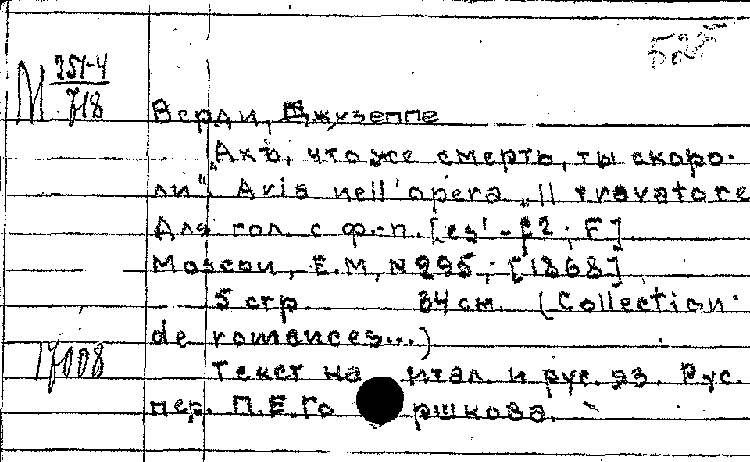 525
М 251-4
718
Верди, Джузеппе
„Ахъ, что же смерть, ты скоро-
ли“. Aria nell'opera „Il trovatore
Для гол. с ф.-п. [es¹-f2; F]
Moscou, E.M, N 295; [1868]
5 стр. 34 см. (Collection
de romances...)
17008
Текст на итал. и рус. яз. Рус.
пер. П.Е.Го ршкова.